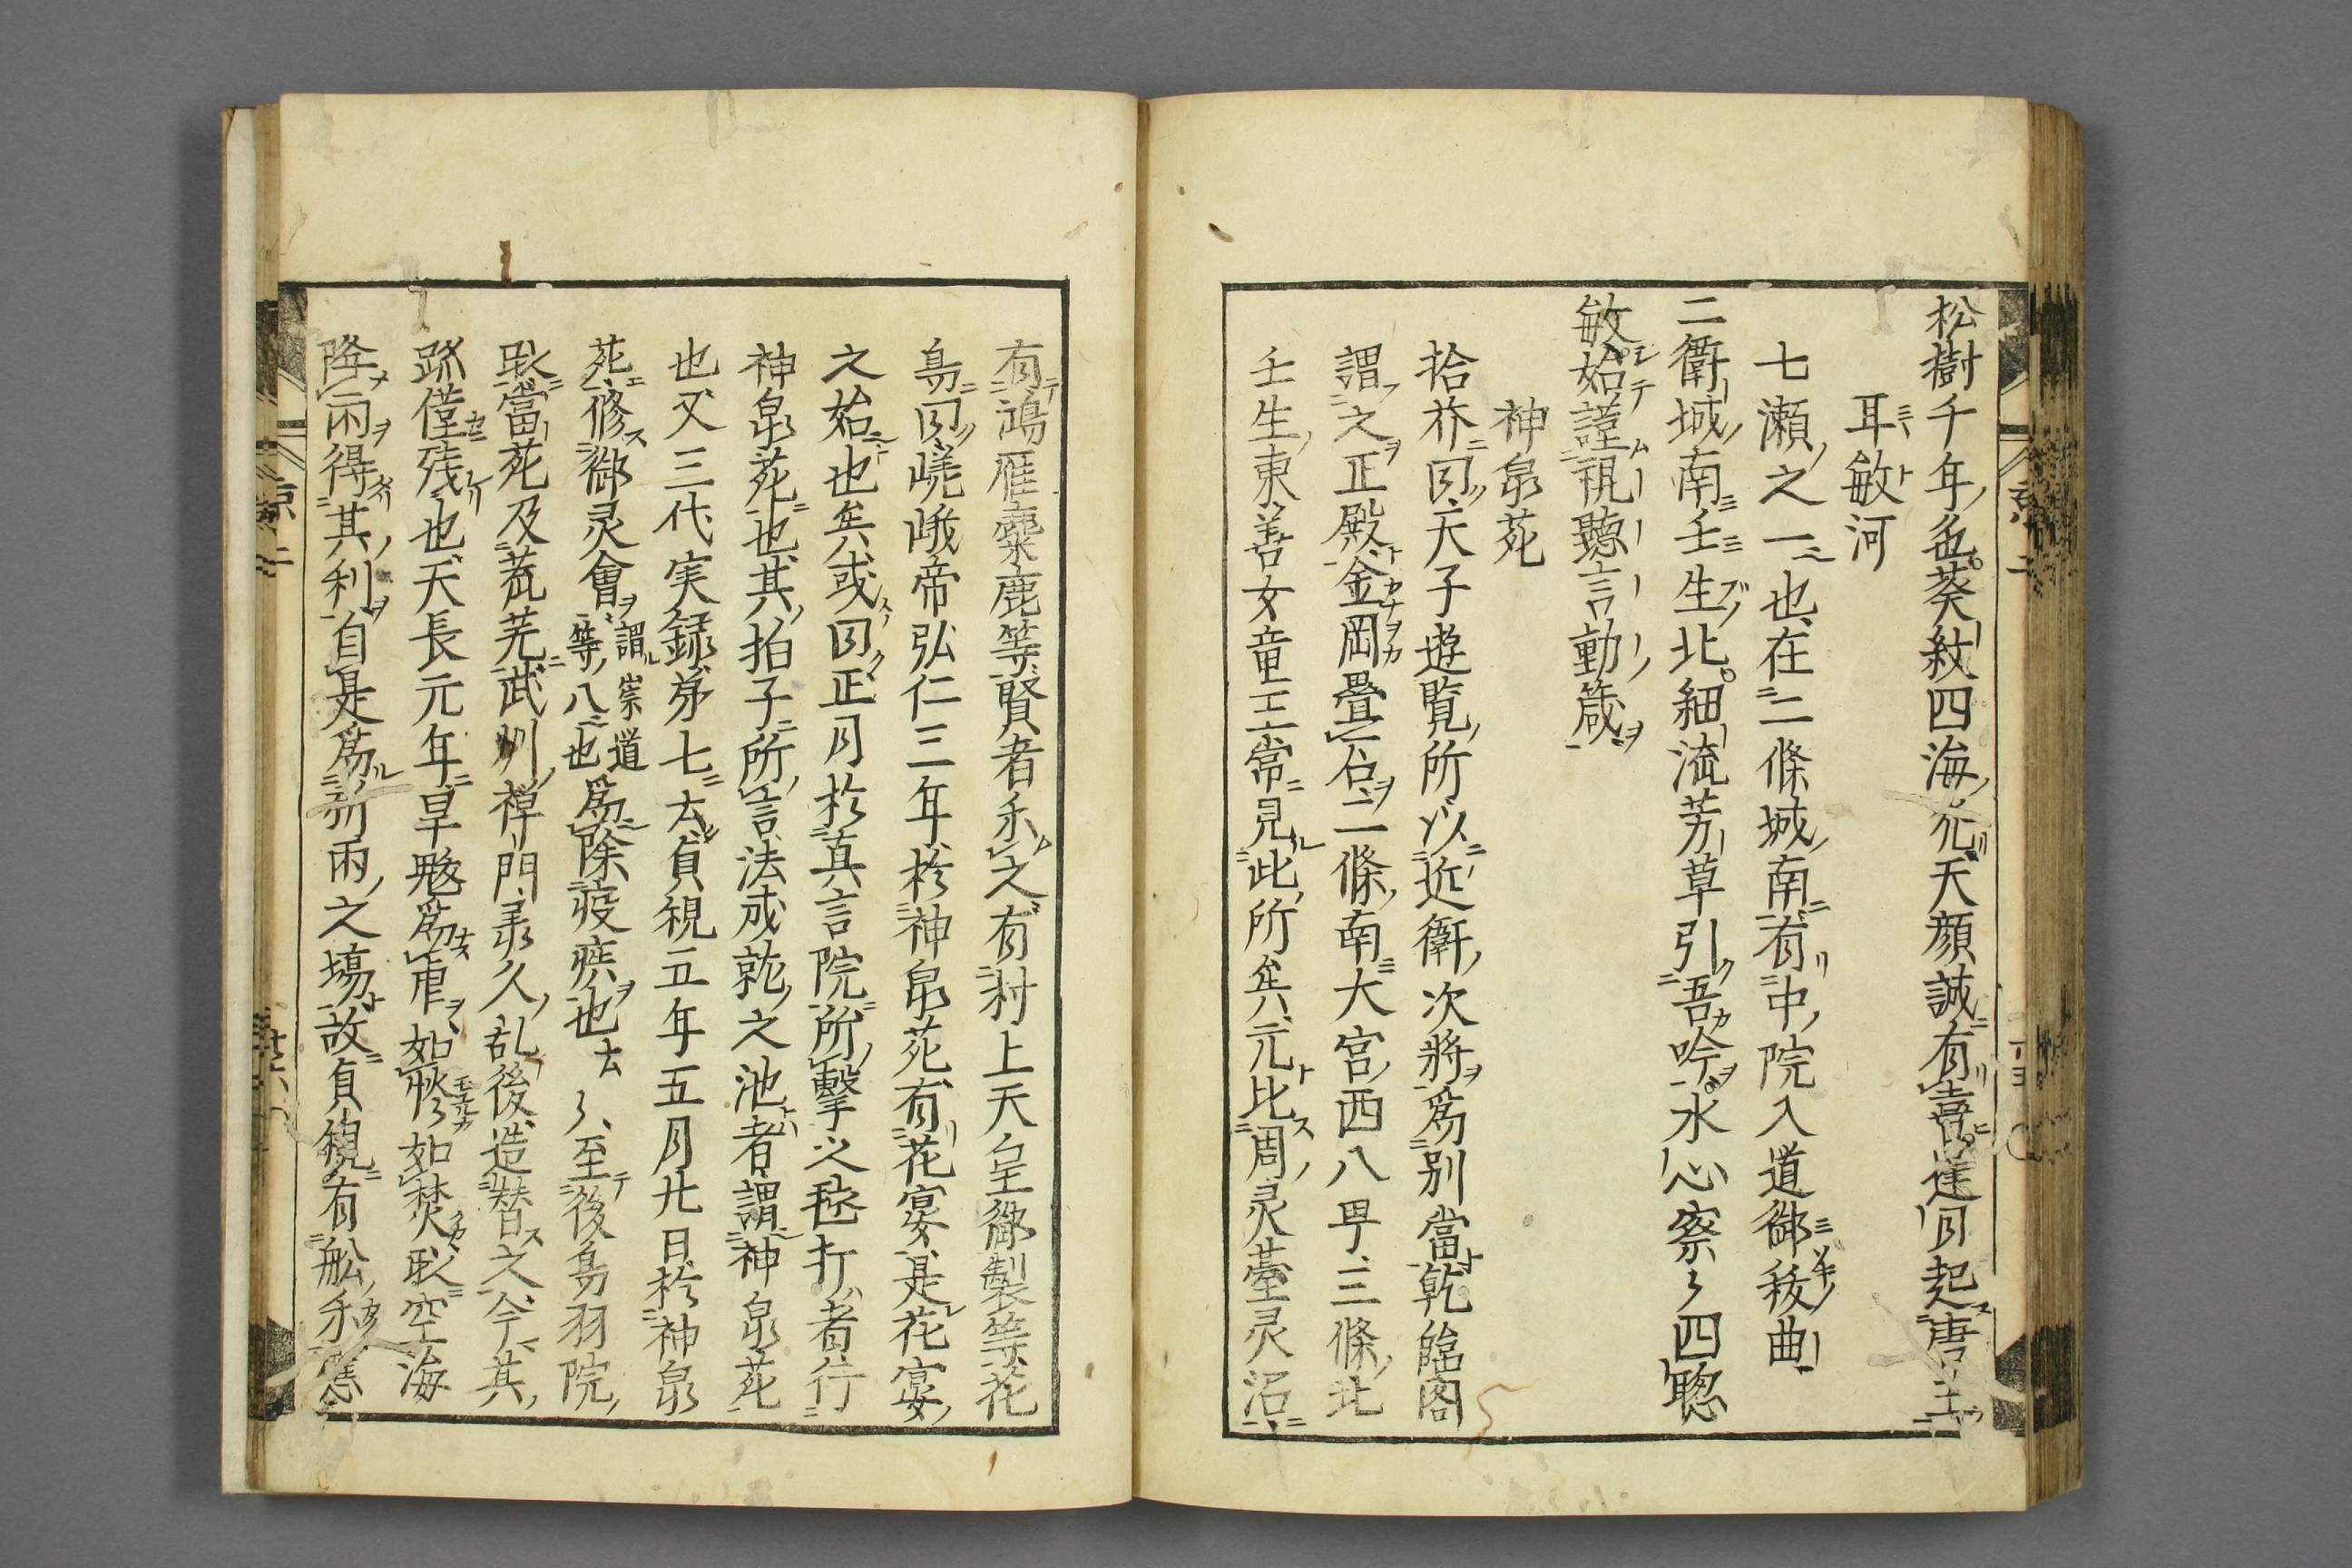 松樹千年色葵紋四海元天顔誠有喜逢月起唐主
耳敏河
七瀬之一也在二條城南有中院入道御秡曲
二衛城南壬生北細流芳草引吾吟水心察々四聡
敏始謹視聴言動箴
神泉苑
拾芥曰天子遊覧所以近衛次将為別當乾臨閣
謂之正殿金岡疊石二條南大宮西八町三條北
壬生東善女童王常見此所矣元比周灵臺灵沼
有鴻雁麋鹿等賢者乐之有村上天皇御製等花
鳥曰嵯峨帝弘仁三年於神泉苑有花宴是花宴
之始也矣或曰正月於真言院所擊之毬打者行
神泉苑也其拍子所言法成就之池者謂神泉苑
也又三代実録第七云貞観五年五月廿日於神泉
苑修御灵會謂崇道等八也為除疫疾也云々至後鳥羽院
取當苑及荒芜武州禅門承久乱後造替之今其
跡僅残也天長元年旱魃為虐如惔如焚耴空海
降雨得其利自是為祈雨之場故貞観有舩乐應